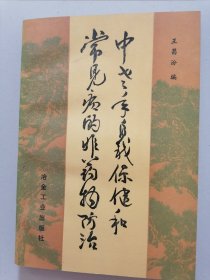 王 汾 编
中老年自我保健和
常见病的非药物防治
冶金工业出版社